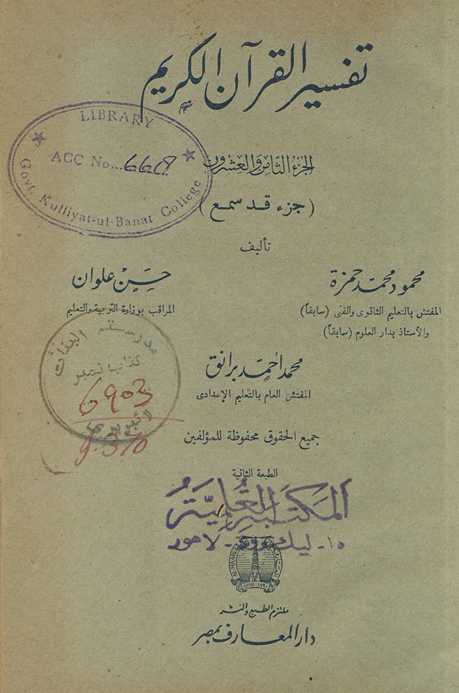 تفسير القرآن الكريم
LIBRARY
ACC No...
Govt. Kulliyat-ul-Banat College
الجزء الثامن والعشرون
(جزء قد سمع)
تأليف
محمود محمد حمزة
المفتش بالتعليم الثانوى والفنى (سابقاً)
والأستاذ بدار العلوم (سابقاً)
حسن علوان
المراقب بوزارة التربية والتعليم
محمد أحمد برانق
المفتش العام بالتعليم الإعدادى
مدرسة البنات
كتاب نمبر
6903
لائبريرى
9.3/0
جميع الحقوق محفوظة للمؤلفين
الطبعة الثانية
المكتبة العلمية
١٥- ليك روڈ - لاهور
ملتزم الطبع والنشر
دار المعارف بمصر